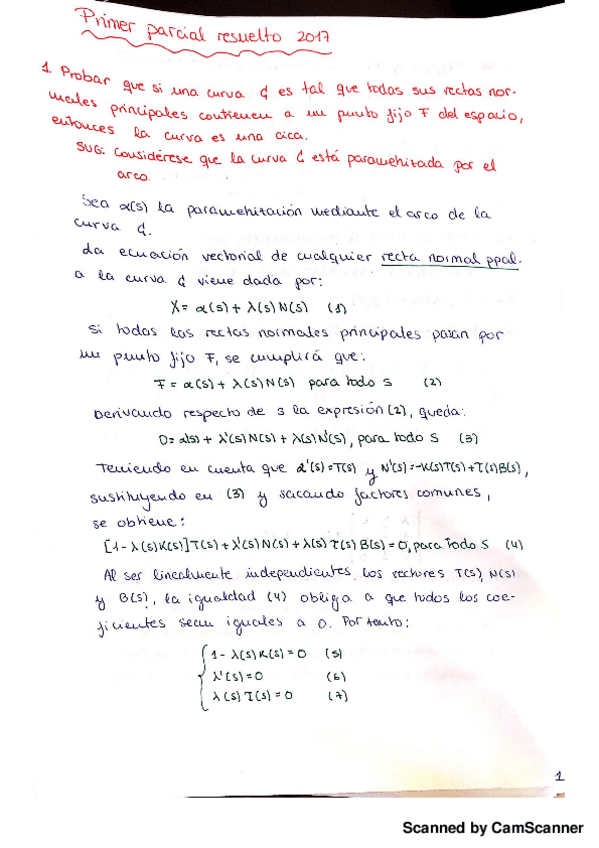 Primer parcial resuelto 2017
1. Probar que si una curva C es tal que todas sus rectas nor-
males principales contienen a un punto fijo F del espacio,
entonces la curva es una cica.
SUG: Considérese que la curva C está parametrizada por el
arco.
Sea α(s) la parametrización mediante el arco de la
curva C.
La ecuación vectorial de cualquier recta normal ppal.
a la curva C viene dada por:
X = α(s) + λ(s)N(s) (1)
Si todas las rectas normales principales pasan por
un punto fijo F, se cumplirá que:
F = α(s) + λ(s)N(s) para todo s (2)
Derivando respecto de s la expresión (2), queda:
0 = α(s) + λ'(s)N(s) + λ(s)N'(s), para todo s (3)
Teniendo en cuenta que α'(s)=T(s) y N'(s)=-K(s)T(s)+τ(s)B(s),
sustituyendo en (3) y sacando factores comunes,
se obtiene:
[1-λ(s)K(s)]T(s)+λ'(s)N(s)+λ(s)τ(s)B(s)=0, para todo s (4)
Al ser linealmente independientes los vectores T(s), N(s)
y B(s), la igualdad (4) obliga a que todos los coe-
ficientes sean iguales a 0. Por tanto:
1-λ(s)K(s)=0 (5)
λ'(s)=0 (6)
λ(s)τ(s)=0 (7)
1
Scanned by CamScanner